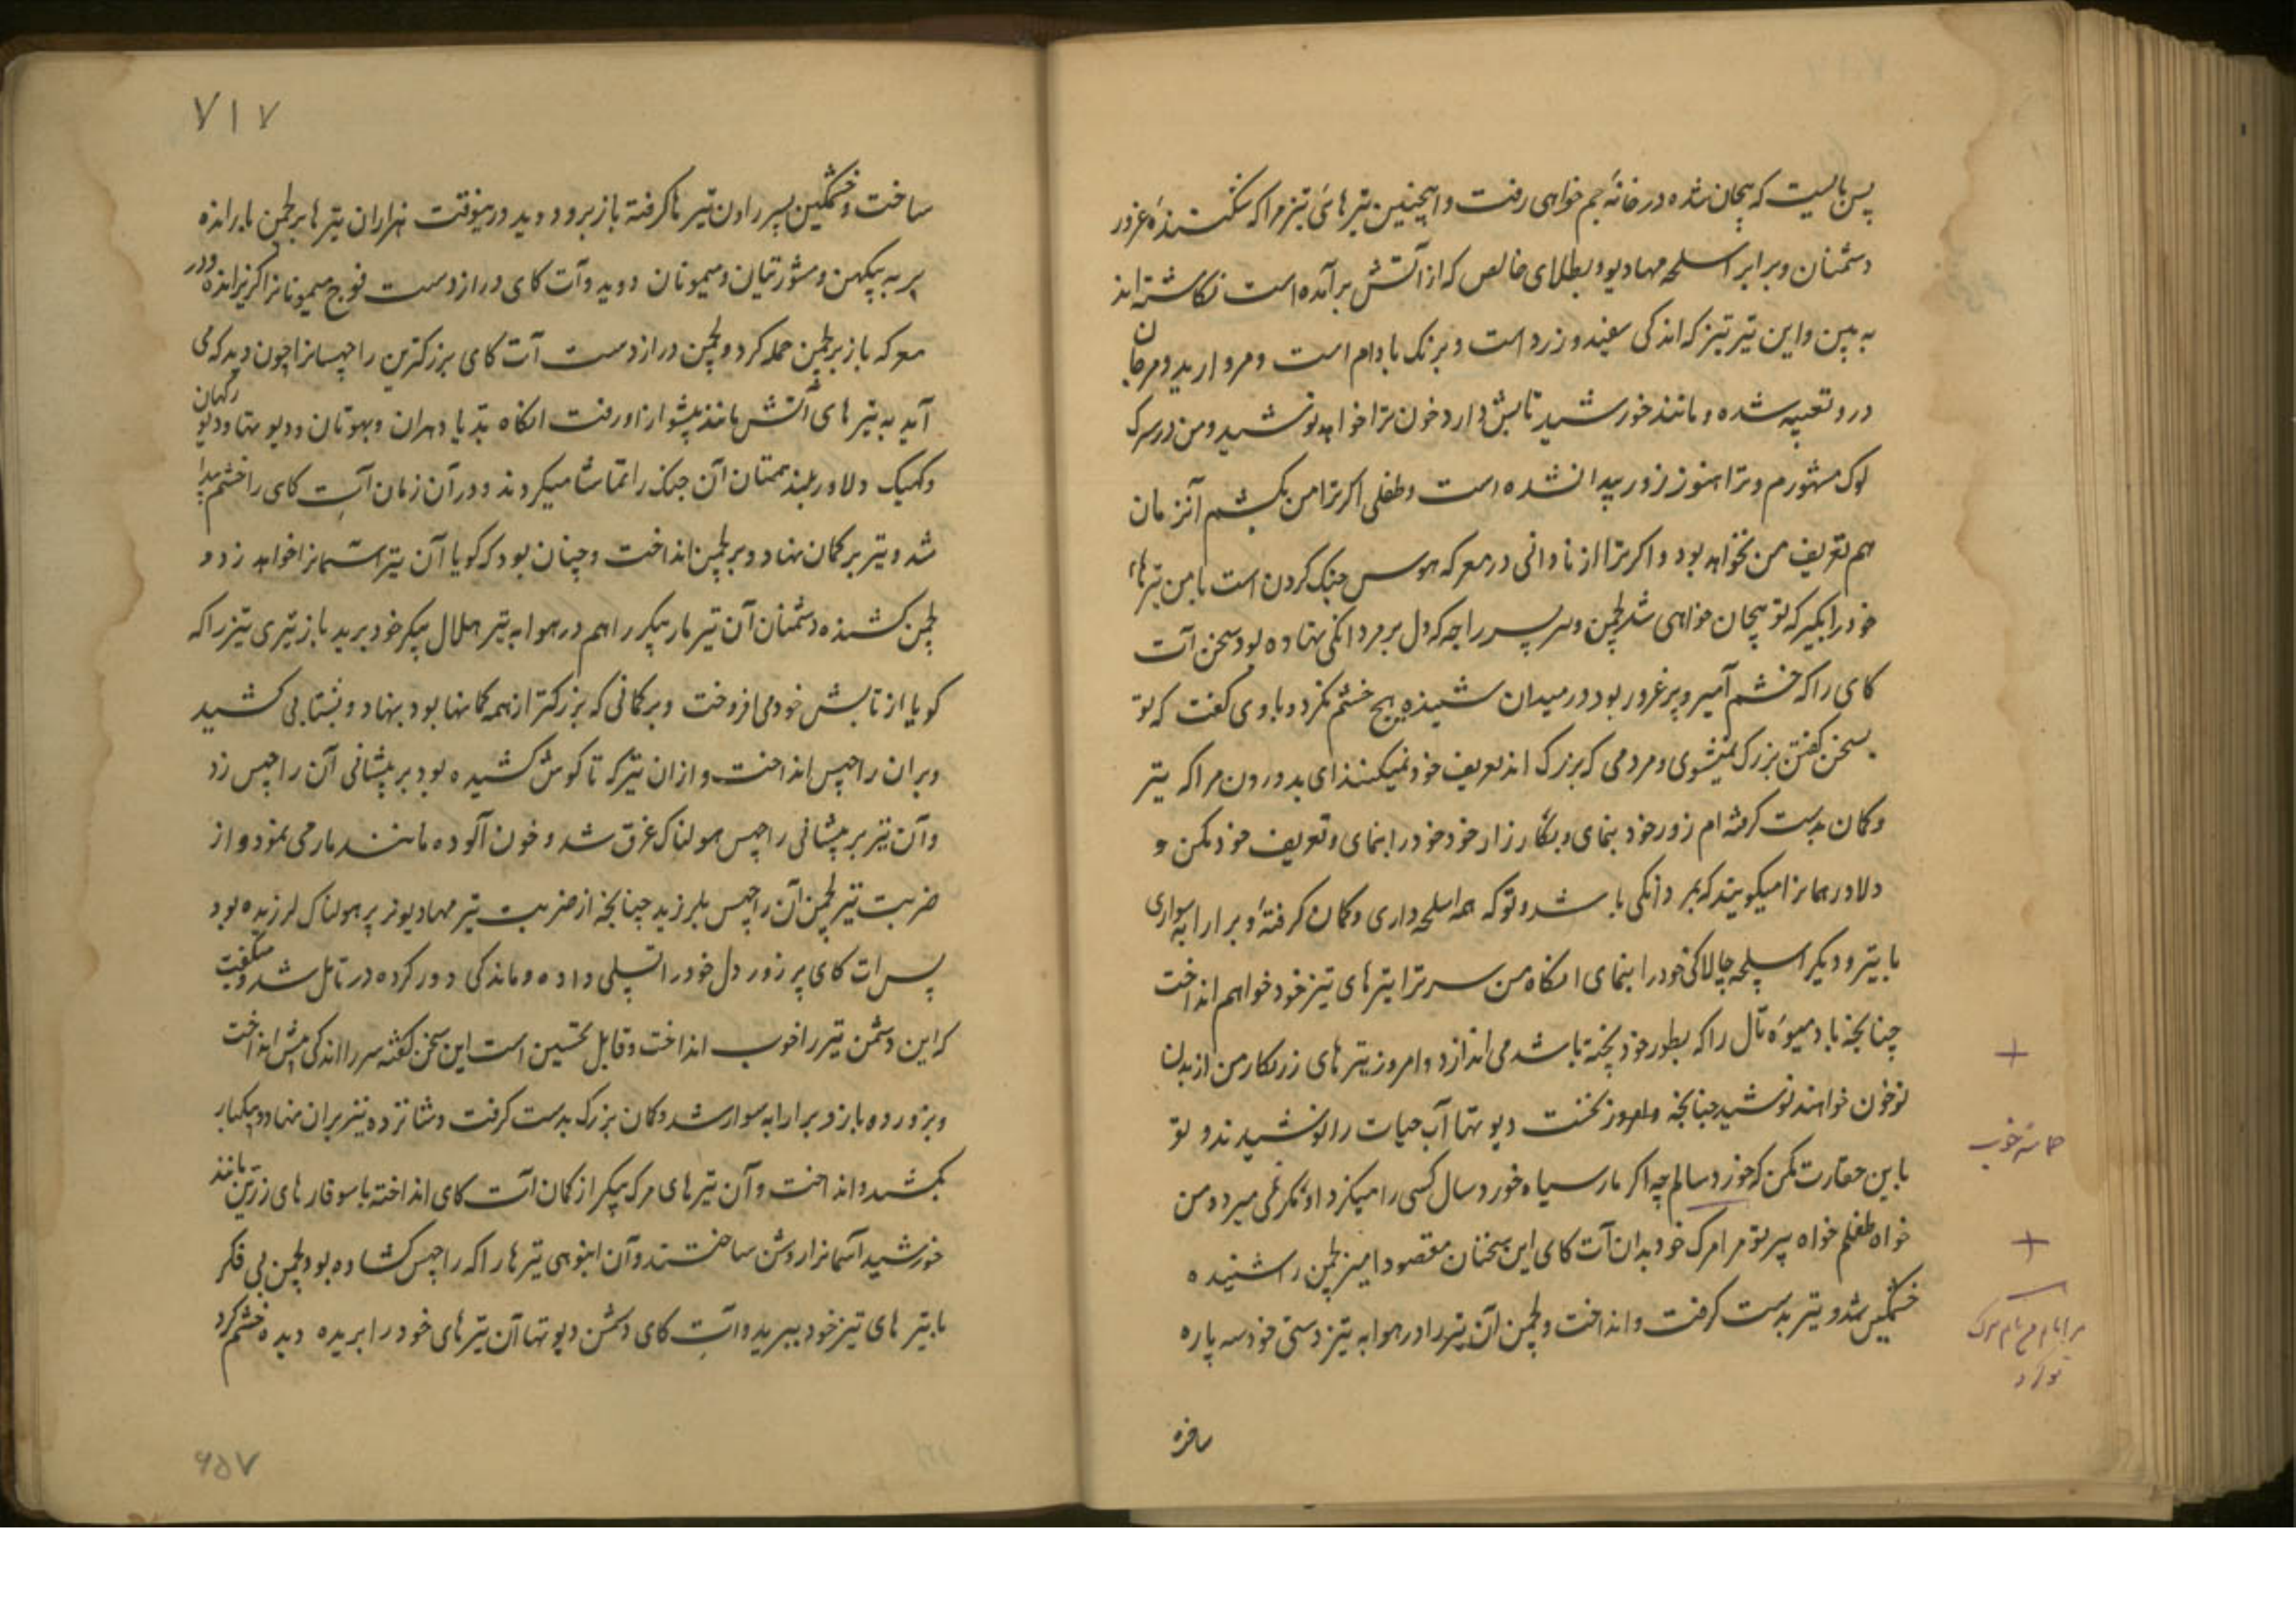 پس بایست که بیجان شده در خانهٔ جم خواهی رفت و اینچنین تیرهای تیز مرا که شکنندهٔ غرور
دشمنان و برابر اسلحه مهادیو و بطلای خالص که از آتش برآمده است نکاشته اند
به بین و این تیر تیز که اندکی سفید و زرد است و برنک بادام است و مروارید و مرجان
درو تعبیه شده و مانند خورشید تابش دارد خون ترا خواهد نوشید و من در سرک
لوک مشهورم و ترا هنوز زور پیدا نشده است و طفلی اکر ترا من بکشم آنزمان
هم تعریف من نخواهد بود و اکر ترا از نادانی در معرکه هوس جنک کردن است با من تیرهاء
خود را بکیر که تو بیجان خواهی شد لچمن و سر پسر راجه که دل بر مردانکی نهاده بود سخن آت
کای را که خشم آمیز و پر غرور بود در میدان شنیده هیچ خشم نکرد و باوی گفت که تو
بسخن کفتن بزرک نمیشوی و مردمی که بزرک اند تعریف خود نمیکنند ای بد درون مرا که تیر
و کمان بدست کرفته ام زور خود بنمای و بکارزار خود خود را بنمای و تعریف خود مکن و
دلاور همانرا میکویند که بمردانکی باشد و تو که همه اسلحه داری و کمان کرفتهٔ و بر ارابه سواری
با تیر و دیکر اسلحه چالاکی خود را بنمای انکاه من سر ترا بتیرهای تیز خود خواهم انداخت
چنانچه باد میوهٔ تال را که بطور خود پخته باشد می اندازد و امروز تیرهای زرنکار من از بدن
تو خون خواهند نوشید چنانچه در روز نخست دیوتها آب حیات را نوشیدند و تو
باین حقارت مکن که خوردسالم چه اکر مار سیاه خورد سال کسی را میکزد او مکر نمی میرد و من
خواه طفلم خواه پیر تو مرا مرک خود بدان آت کای این سخنان مقصود آمیز لچمن را شنیده
خشمگین شد و تیر بدست کرفت و انداخت و لچمن آن تیر را در هوا به تیز دستی خود سه پاره
+
حماسه خوب
+
مرا مام من نام مرگ
تو کرد
۷۱۷
ساخت و خشمگین پسر راون تیرها کرفته باز برو دوید درینوقت هزاران تیرها بر لچمن بارانده
پر به ببیکهن و سترتیان و میمونان دوید و آت کای دراز دست فوج میمونانرا کریزانده و در
معرکه باز بر لچمن حمله کرد و لچمن دراز دست آت کای بزرکترین راچهسانرا چون دید که می
آید به تیرهای آتش مانند پیشواز او رفت انکاه بدیا دهران و بهوتان و دیوتها و دیو رکهان
و کهیک دلاور بلند همتان آن جنک را تماشا میکردند و در آن زمان آت کای را خشم پیدا
شد و تیر بر کمان نهاد و بر لچمن انداخت و چنان بود که کویا آن تیر آسمانرا خواهد زد و
لچمن کشنده دشمنان آن تیر مار پیکر را هم در هوا به تیر هلال پیکر خود برید باز تیری تیز را که
کویا از تابش خود می افروخت و بر کمانی که بزرکتر از همه کمانها بود بنهاد و بشتابی کشید
و بران راچهس انداخت و ازان تیر که تا کوش کشیده بود بر پیشانی آن راچهس زد
و آن تیر بر پیشانی راچهس هولناک غرق شد و خون آلوده مانند مار می نمود و از
ضربت تیر لچمن آن راچهس بلرزید چنانچه از ضربت تیر مهادیو تر پر هولناک لرزیده بود
پس آت کای پر زور دل خود را تسلی داده و ماندکی دور کرده در تامل شد و میکفت
که این دشمن تیر را خوب انداخت و قابل تحسین است این سخن کفته سر را اندکی پیش انداخت
و بزور ده بازو بر ارابه سوار شد و کمان بزرک بدست کرفت و شانزده تیر بران نهاد و بیکبار
بکشید و انداخت و آن تیرهای مرک پیکر از کمان آت کای انداخته با سوفارهای زرین مانند
خورشید آسمانرا روشن ساختند و آن انبوهی تیرها را که راچهس کشاده بود لچمن بی فکر
با تیرهای تیز خود ببرید و آت کای دشمن دیوتها آن تیرهای خود را بریده دیده خشم کرد
۶۵۷